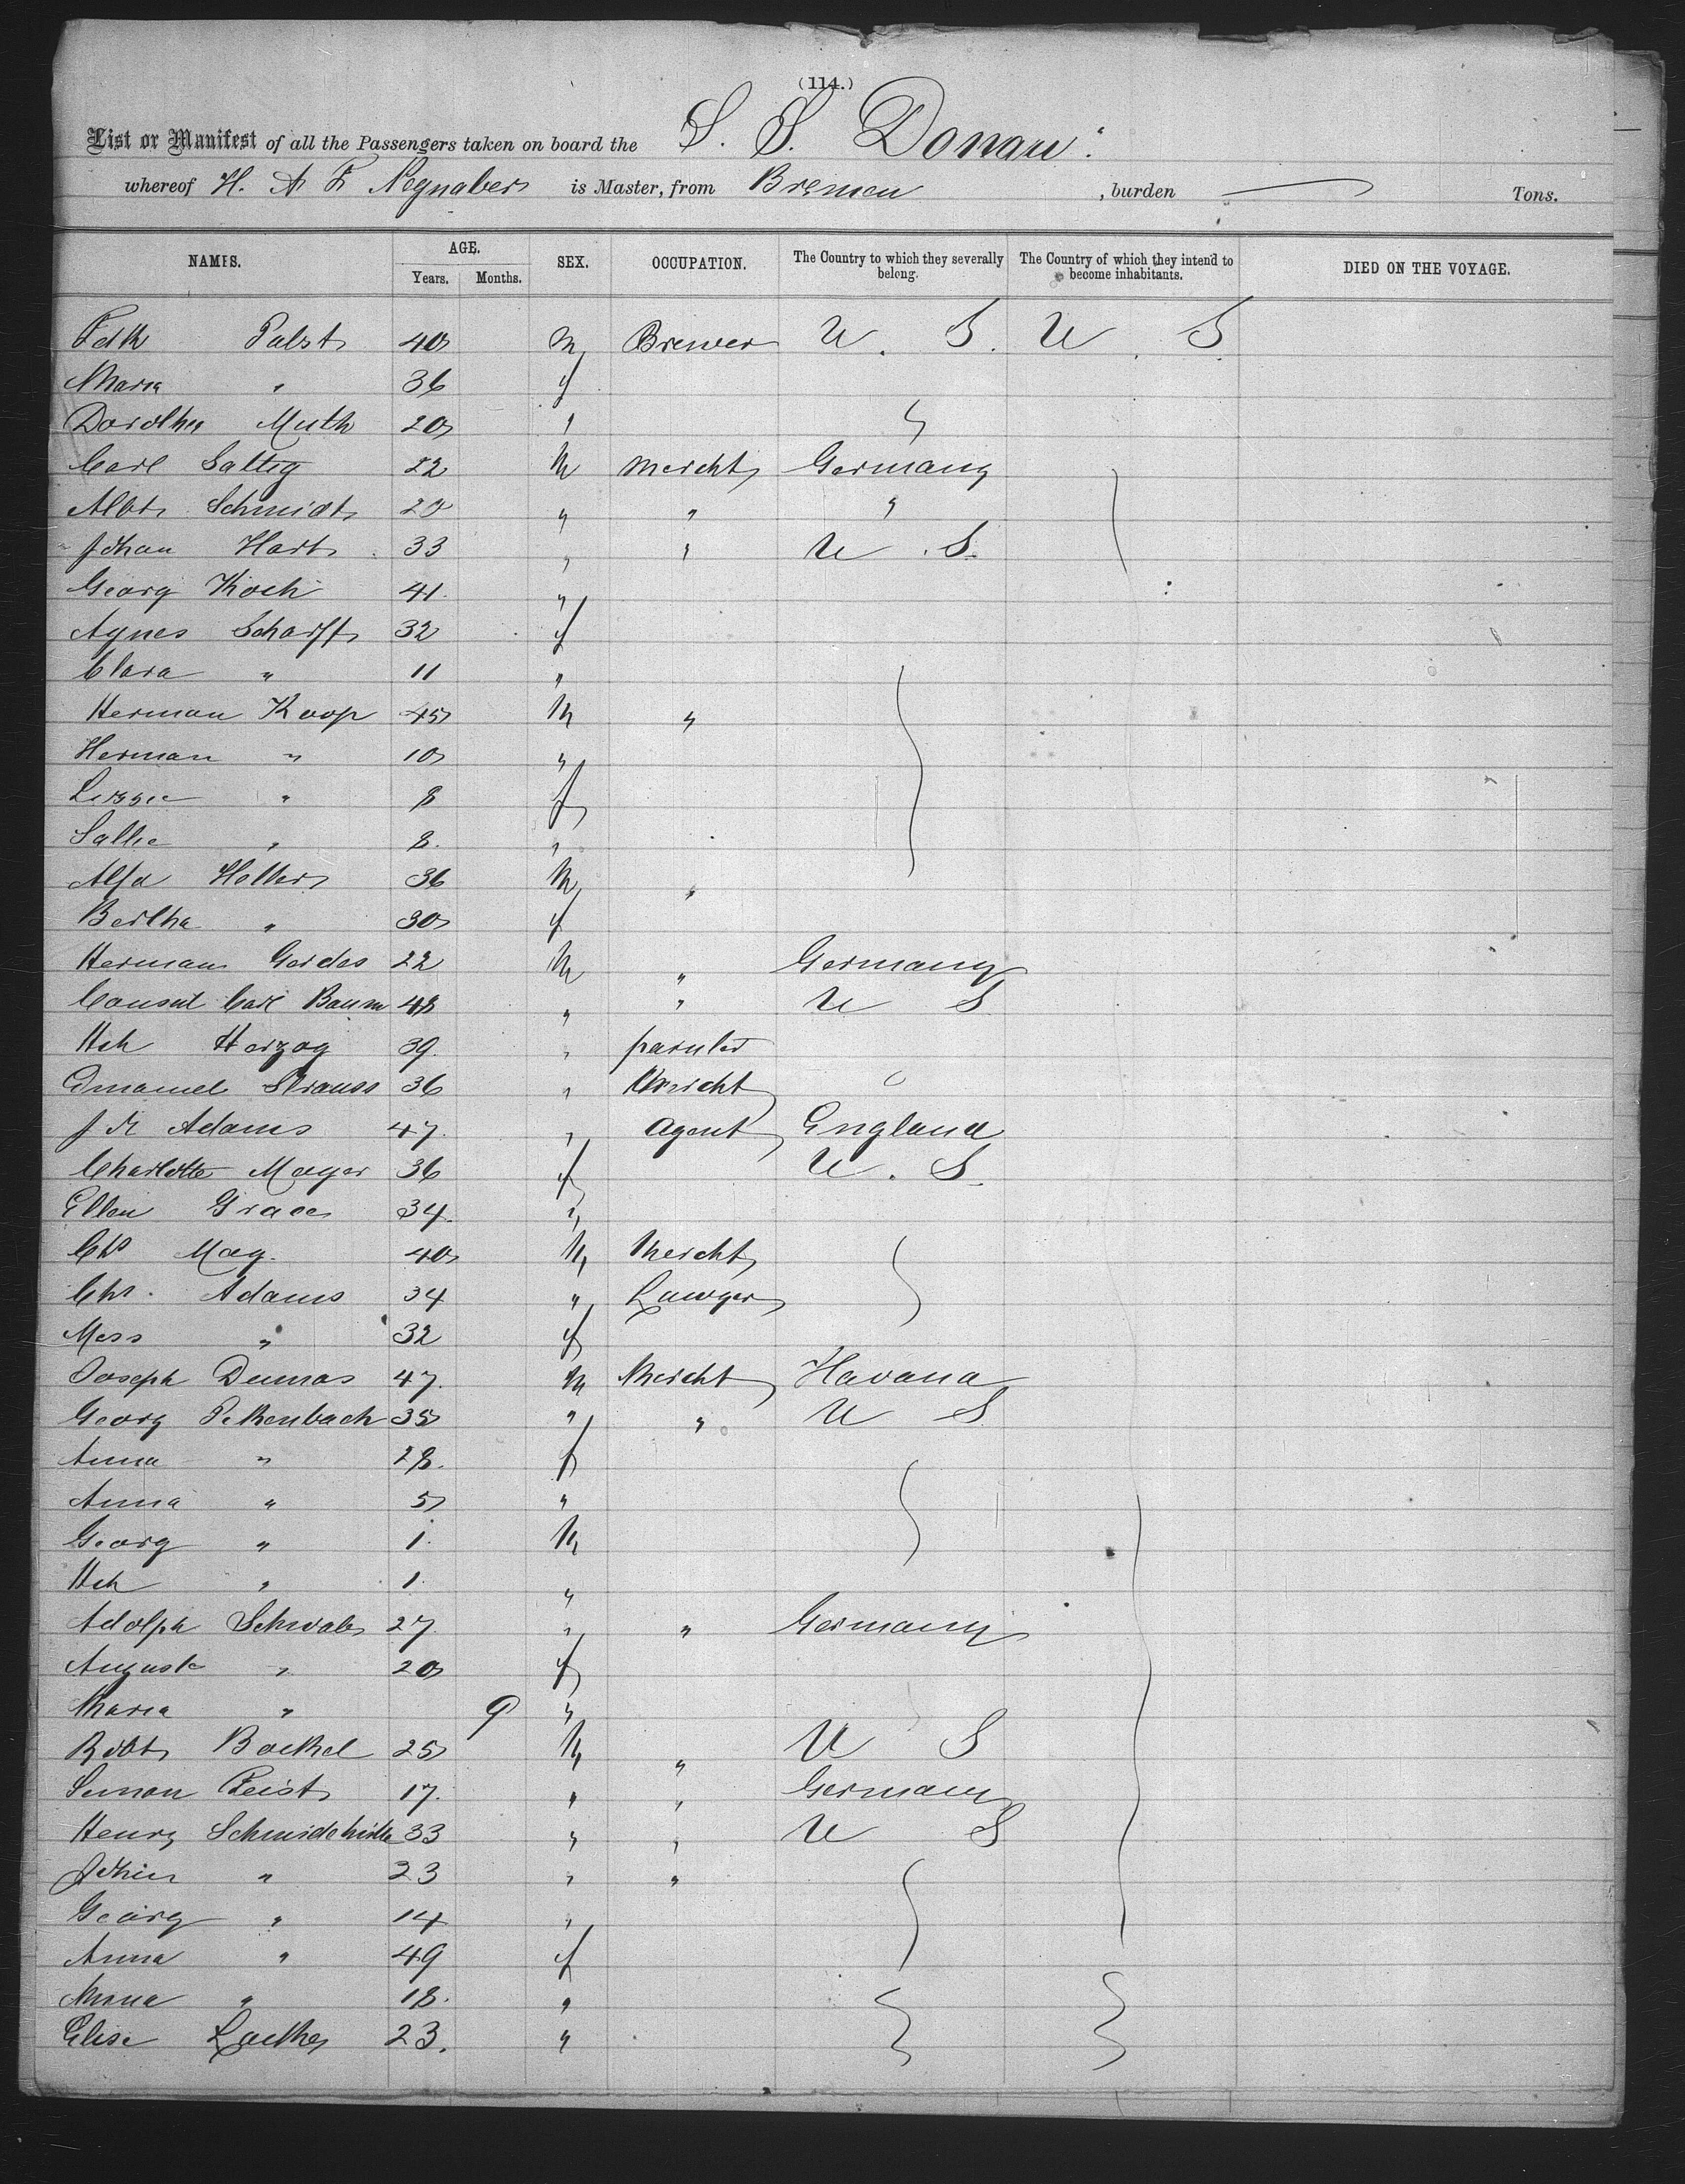 (114.)
List or Manifest of all the Passengers taken on board the S. S. Donau.
whereof H. A. F. Neynaber is Master, from Bremen, burden — Tons.
NAMES. AGE. SEX. OCCUPATION. The Country to which they severally belong. The Country of which they intend to become inhabitants. DIED ON THE VOYAGE.
Years. Months.
Fdk Pabst 40 M Brewer U. S. U. S.
Maria " 36 f
Dorothea Muth 20 "
Carl Saltig 22 M Mercht Germany
Albt Schmidt 20 " " "
Johan Hart 33 " " U. S.
Georg Koch 41 "
Agnes Scharff 32 f
Clara " 11 "
Herman Koop 45 M "
Herman " 10 "
Lizzie " 8 f
Sallie " 8 "
Alfd Holters 36 M "
Bertha " 30 f
Herman Gerdes 22 M " Germany
Consul Carl Baum 48 " " U S
Hch Herzog 39 "
Emanuel Strauss 36 " Mercht
J Adams 47 " Agent England
Charlotte Mayer 36 f U. S.
Ellen Grace 34 "
Chs May 40 M Mercht
Chs. Adams 34 " Lawyer
Mrss " 32 f
Joseph Dumas 47 M Mercht Havana
Georg 35 " " U S
Anna " 28 f
Anna " 5 "
Georg " 1 M
Hch " 1 "
Adolph Schwab 27 " " Germany
Auguste " 20 f
Maria " 9 "
Robt Boekel 25 M " U S
Simon Feist 17 " " Germany
Henry 33 " " U S
" 23 " "
Georg " 14 "
Anna " 49 f
" 18 "
Elise 23 "